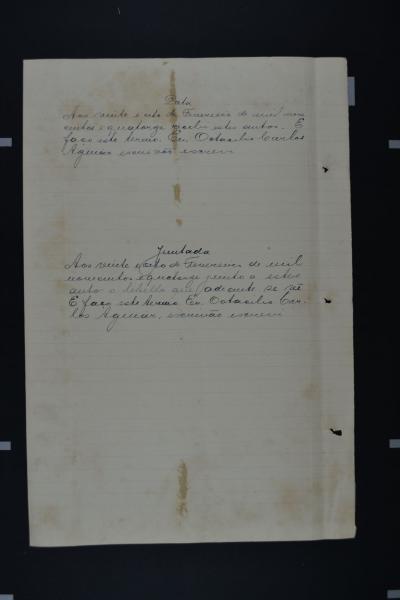 Data
Aos vinte e oito de Fevereiro de mil nove
centos e quatorze recebi estes autos. E
faço este termo. Eu, Octacilio Carlos
Aguiar escrivão escrevi
Juntada
Aos vinte e oito de Fevereiro de mil
novecentos e quatorze junto a estes
autos o libello que adiante se vê
E faço este termo Eu, Octacilio Car-
los Aguiar, escrivão escrevi